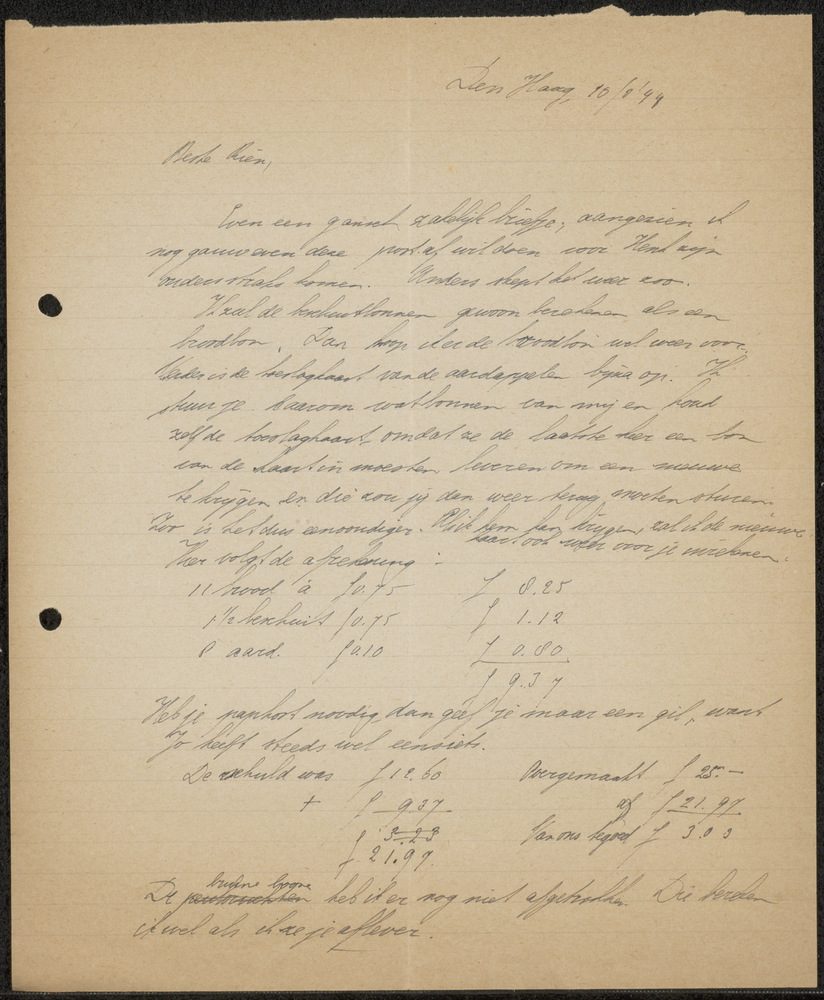 Den Haag, 10/8 '44
Beste Rien,
Even een gansch zakelijk briefje, aangezien ik
nog gauw even deze post af wil doen voor Henk zijn
ouders straks komen. Anders stept het weer zoo.
Ik zal de beschuitbonnen gewoon berekenen als een
broodbon. Dan loop ik de broodbon wel weer voor.
Verder is de toeslagkaart van de aardappelen bijna op. Ik
stuur je daarom wat bonnen van mij en houd
zelf de toeslagkaart, omdat ze de laatste keer een bon
van de kaart in moesten leveren om een nieuwe
te krijgen en die zou jij dan weer terug moeten sturen.
Zoo is het dus eenvoudiger. Als ik hem kan krijgen, zal ik de nieuwe
kaart ook weer voor je inrekenen.
Hier volgt de afrekening:
11 brood à f 0.75 f 8.25
1½ beschuit f 0.75 f 1.12
8 aard. f 0.10 f 0.80
f 9.37
Heb je noodig, dan geef je maar een gil, want
Jo heeft steeds wel eens iets.
De schuld was f 12.60 Overgemaakt f 25.—
+ f 9.37 af f 21.97
f 3.23 Van ons tegoed f 3.03
f 21.97
De bruine boonen heb ik er nog niet afgetrokken. Die bereken
ik wel als ik ze je aflever.